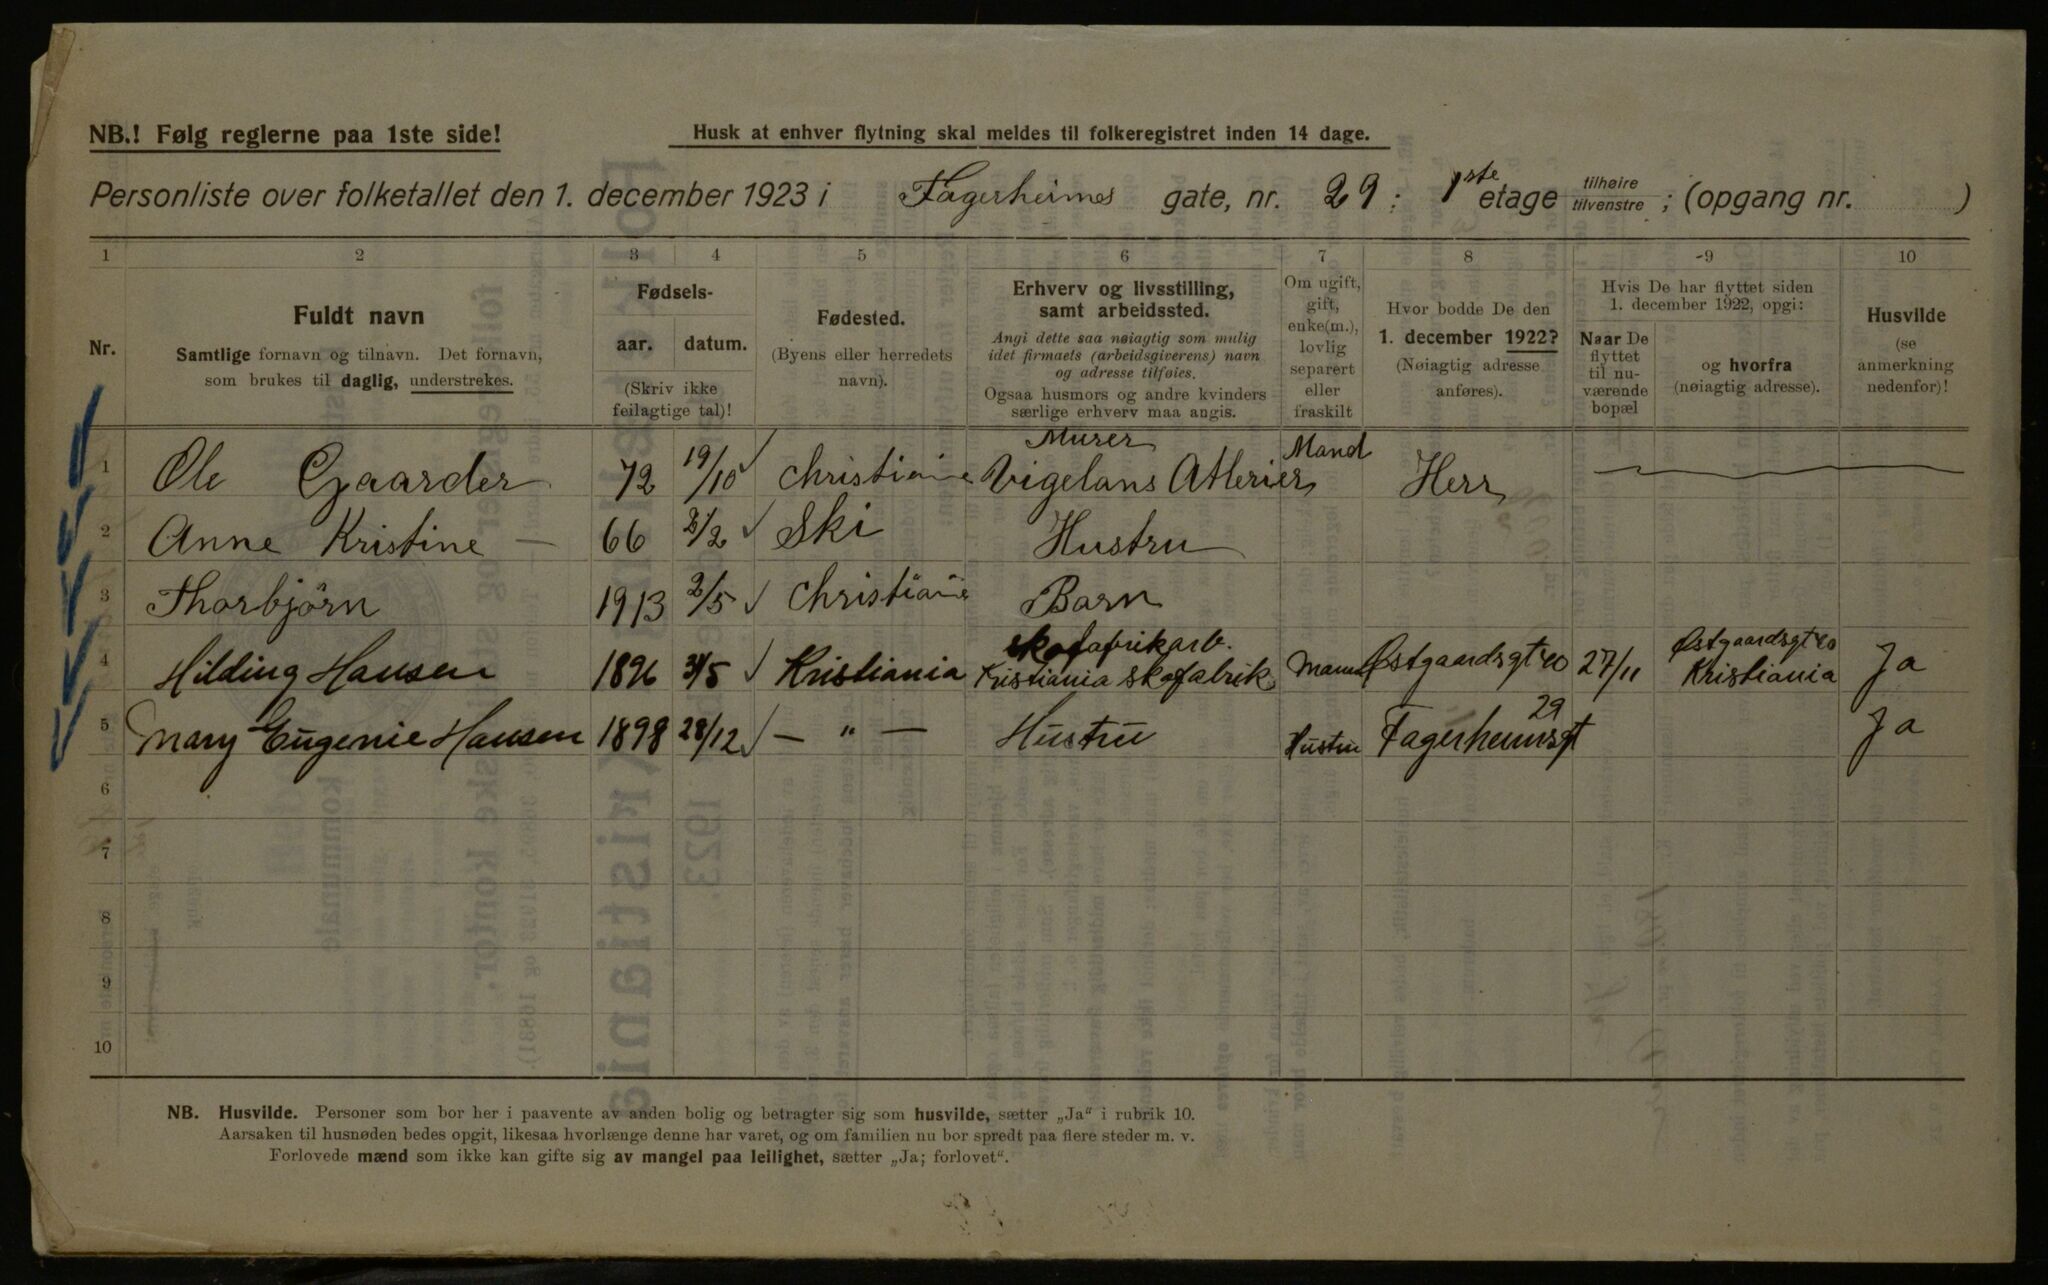 NB.! Følg reglerne paa 1ste side!
Husk at enhver flytning skal meldes til folkeregistret inden 14 dage.
Personliste over folketallet den 1. december 1923 i Fagerheims gate, nr. 29 : 1ste etage tilhøire tilvenstre ; (opgang nr. )
1 2 3 4 5 6 7 8 9 10
Nr.
Fuldt navn
Samtlige fornavn og tilnavn. Det fornavn,
som brukes til daglig, understrekes.
Fødsels-
aar. datum.
(Skriv ikke
feilagtige tal)!
Fødested.
(Byens eller herredets
navn).
Erhverv og livsstilling,
samt arbeidssted.
Angi dette saa nøiagtig som mulig
idet firmaets (arbeidsgiverens) navn
og adresse tilføies.
Ogsaa husmors og andre kvinders
særlige erhverv maa angis.
Om ugift,
gift,
enke(m.),
lovlig
separert
eller
fraskilt
Hvor bodde De den
1. december 1922?
(Nøiagtig adresse
anføres).
Hvis De har flyttet siden
1. december 1922, opgi:
Naar De
flyttet
til nu-
værende
bopæl
og hvorfra
(nøiagtig adresse).
Husvilde
(se
anmerkning
nedenfor)!
Murer
1 Ole Gjaarder 72 19/10 Christiania Vigelans Atlerier Mand Herr
2 Anne Kristine — 66 2/2 Ski Hustru
3 Thorbjörn 1913 2/5 Christiania Barn
skofabrikarb. Østgaardsgt 20
4 Hilding Hansen 1896 31/5 Kristiania Kristiania skofabrik Mann Østgaardsgt 20 27/11 Kristiania Ja
29
5 Mary Eugenie Hansen 1898 28/12 — " — Hustru Hustru Fagerheimsgt Ja
6
7
8
9
10
NB. Husvilde. Personer som bor her i paavente av anden bolig og betragter sig som husvilde, sætter „Ja" i rubrik 10.
Aarsaken til husnøden bedes opgit, likesaa hvorlænge denne har varet, og om familien nu bor spredt paa flere steder m. v.
Forlovede mænd som ikke kan gifte sig av mangel paa leilighet, sætter „Ja; forlovet".